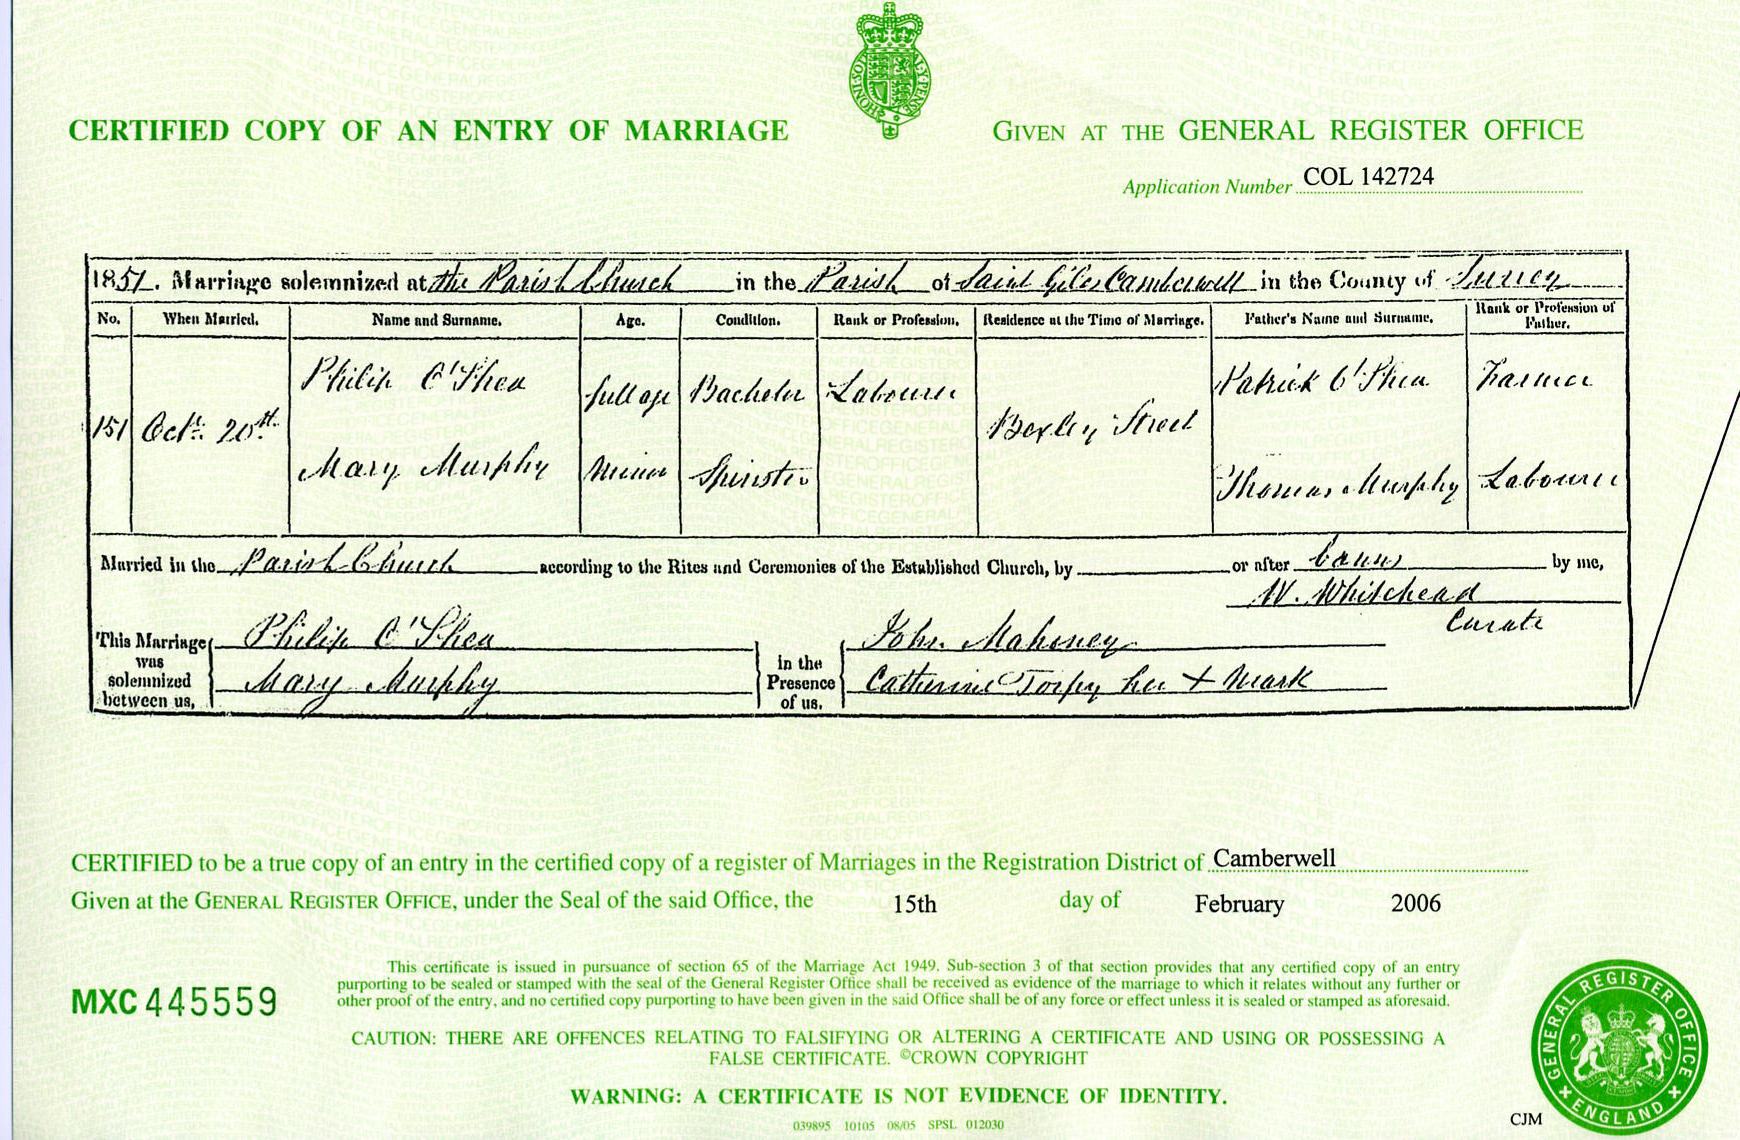 HONI SOIT QUI MAL Y PENSE
CERTIFIED COPY OF AN ENTRY OF MARRIAGE
GIVEN AT THE GENERAL REGISTER OFFICE
Application Number COL 142724
1851. Marriage solemnized at the Parish Church in the Parish of Saint Giles Camberwell in the County of Surrey
No. When Married. Name and Surname. Age. Condition. Rank or Profession. Residence at the Time of Marriage. Father's Name and Surname. Rank or Profession of Father.
Philip O'Shea full age Bachelor Labourer Patrick O'Shea Farmer
151 Octr. 20th. Bexley Street
Mary Murphy Minor Spinster Thomas Murphy Labourer
Married in the Parish Church according to the Rites and Ceremonies of the Established Church, by or after banns by me,
W. Whitehead
Curate
This Marriage was solemnized between us,
Philip O'Shea
Mary Murphy
in the Presence of us,
John Mahoney
Catherine Torpy her + Mark
CERTIFIED to be a true copy of an entry in the certified copy of a register of Marriages in the Registration District of Camberwell
Given at the GENERAL REGISTER OFFICE, under the Seal of the said Office, the 15th day of February 2006
MXC 445559
This certificate is issued in pursuance of section 65 of the Marriage Act 1949. Sub-section 3 of that section provides that any certified copy of an entry
purporting to be sealed or stamped with the seal of the General Register Office shall be received as evidence of the marriage to which it relates without any further or
other proof of the entry, and no certified copy purporting to have been given in the said Office shall be of any force or effect unless it is sealed or stamped as aforesaid.
CAUTION: THERE ARE OFFENCES RELATING TO FALSIFYING OR ALTERING A CERTIFICATE AND USING OR POSSESSING A
FALSE CERTIFICATE. ©CROWN COPYRIGHT
WARNING: A CERTIFICATE IS NOT EVIDENCE OF IDENTITY.
039895 10105 08/05 SPSL 012030
CJM
GENERAL REGISTER OFFICE
ENGLAND